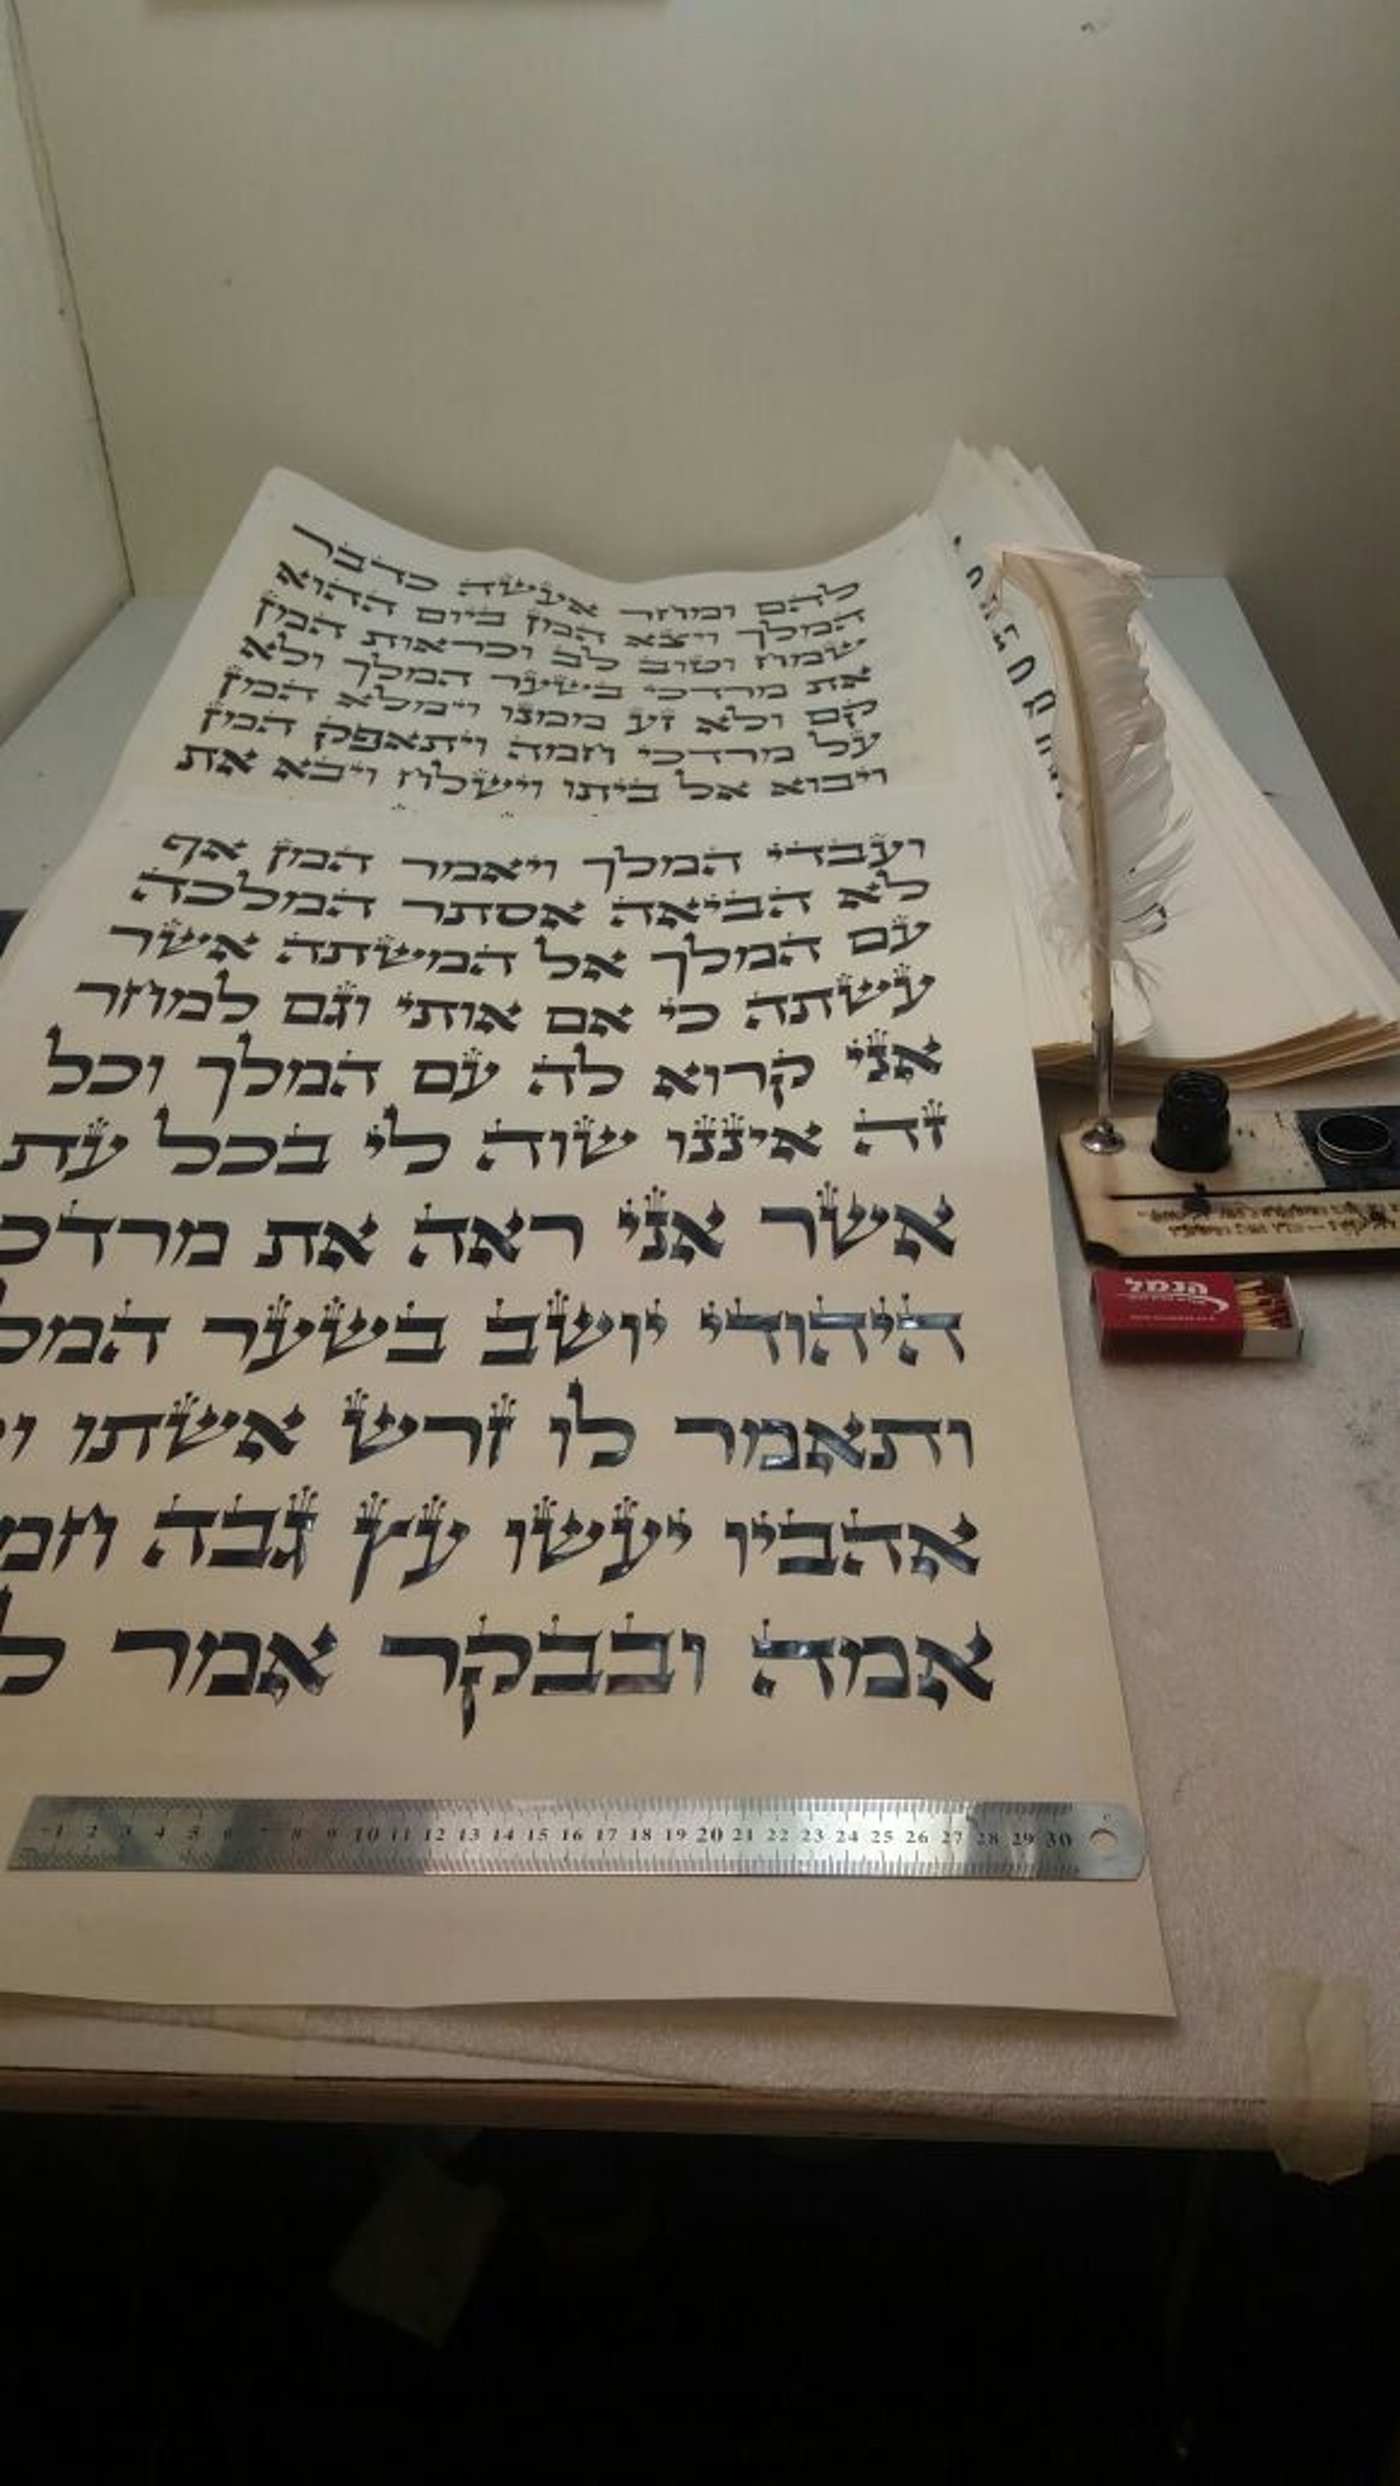 להם ומחר אעשה כדבר
המלך ויצא המן ביום ההוא
שמח וטוב לב וכראות המן
את מרדכי בשער המלך ולא
קם ולא זע ממנו וימלא המן
על מרדכי חמה ויתאפק המן
ויבוא אל ביתו וישלח ויבא את
ועבדי המלך ויאמר המן אף
לא הביאה אסתר המלכה
עם המלך אל המשתה אשר
עשתה כי אם אותי וגם למחר
אני קרוא לה עם המלך וכל
זה איננו שוה לי בכל עת
אשר אני ראה את מרדכ
היהודי יושב בשער המל
ותאמר לו זרש אשתו וי
אהביו יעשו עץ גבה חמ
אמה ובבקר אמר ל
הנמל
1 2 3 4 5 6 7 8 9 10 11 12 13 14 15 16 17 18 19 20 21 22 23 24 25 26 27 28 29 30